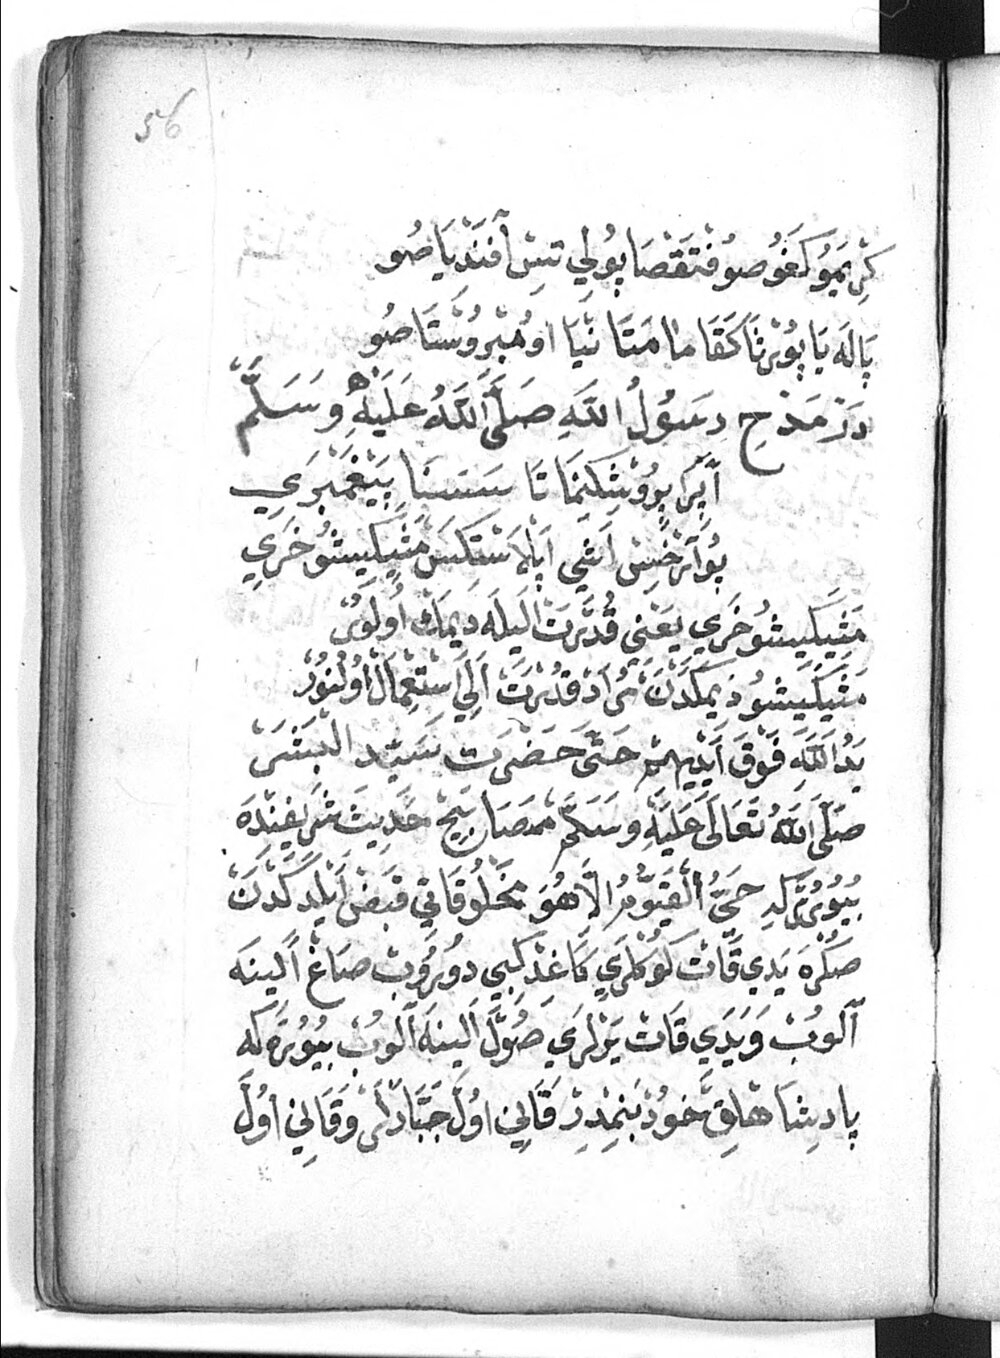 56
كِرْ يَمُو كَغُو صُو فْتَقْصَا پُولِي تِسْ آفَنْدِيَا صُو
پَالَه يَا پُوْرْنَا كَقَا مَا مَتَا نِيَا اوُمْبْرُوسْتَا صُو
دَرْ مَدْحِ رَسُولُ اللّٰهِ صَلَّى اللّٰهُ عَلَيْهِ وَسَلَّمْ
پَيْغَمْبَرِي
مَثِيلِيشُو خَرِي
مَثِيلِيشُو خَرِي يَعْنِي قُدْرَتْ اَيْلَه دَيمَكْ اُولَوُرْ
مَثِيلِيشُو دَيمَكْدَنْ مُرَادْ قُدْرَتْ اَلِي اِسْتِعْمَالْ اوُلُنُورْ
يَدُ اللّٰهِ فَوْقَ اَيْدِيهِمْ حَتَّى حَضْرَتِ سَيِّدِ الْبَشَرْ
صَلَّى اللّٰهُ تَعَالَى عَلَيْهِ وَسَلَّمْ مَصَابِيحْ حَدِيثِ شَرِيفِنْدَه
بُيُورُرْكِه حَيُّ الْقَيُّومُ اِلَّا هُوَ مَخْلُوقَاتِي قَبْضْ اَيْلَدِكْدَنْ
صُكْرَه يَدِي قَاتْ كُوكْلَرِي كَاغِدْ كِبِي دُورُوبْ صَاغْ اَلِينَه
آلُوبْ وَيَدِي قَاتْ يَرْلَرِي صُولْ اَلِينَه آلُوبْ بُيُورَه كِه
پَادِشَاهْلِقْ خُودْ بَنِمْدِرْ قَانِي اوُلْ جَبَّارْلَرْ وَقَانِي اوُلْ